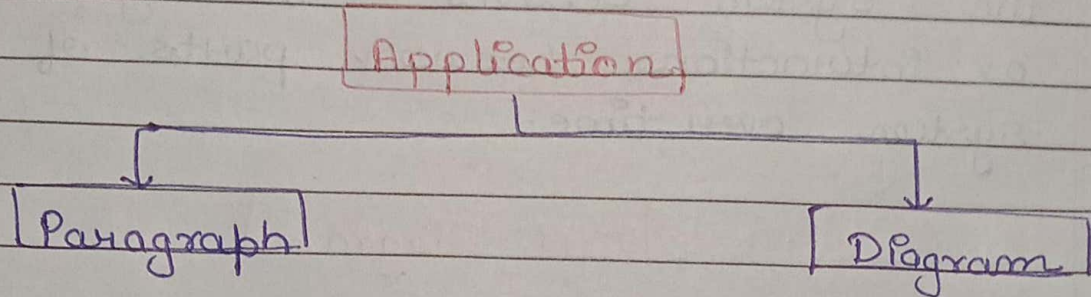 Application
Paragraph
Diagram